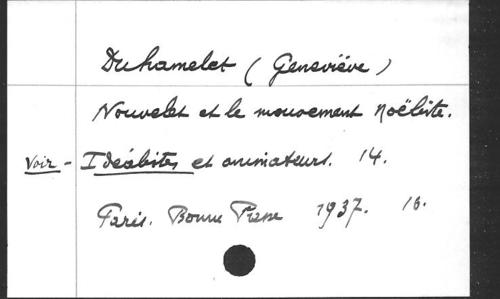 Duhamelet (Geneviève)
Nouvelet et le mouvement Noëliste.
Voir - Idéalistes et animateurs. 14.
Paris. Bonne Presse 1937. 16.